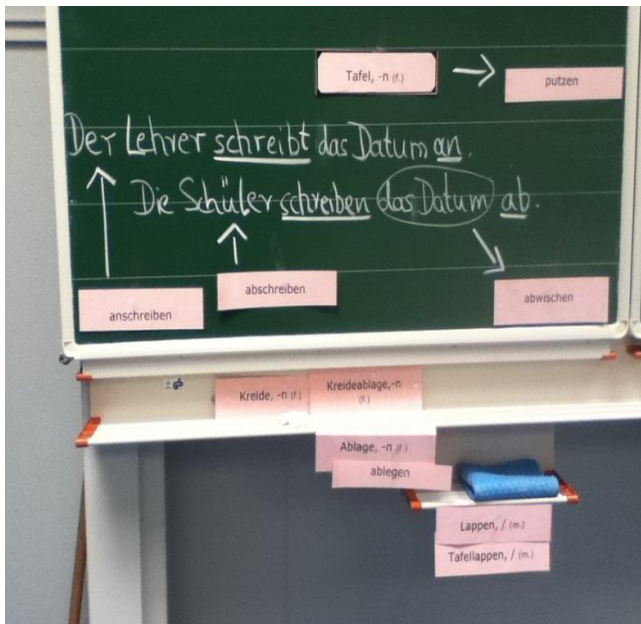 Tafel, -n (f.)
putzen
Der Lehrer schreibt das Datum an.
Die Schüler schreiben das Datum ab.
anschreiben
abschreiben
abwischen
Kreide, -n (f.)
Kreideablage,-n
(f.)
Ablage, -n (f.)
ablegen
Lappen, / (m.)
Tafellappen, / (m.)